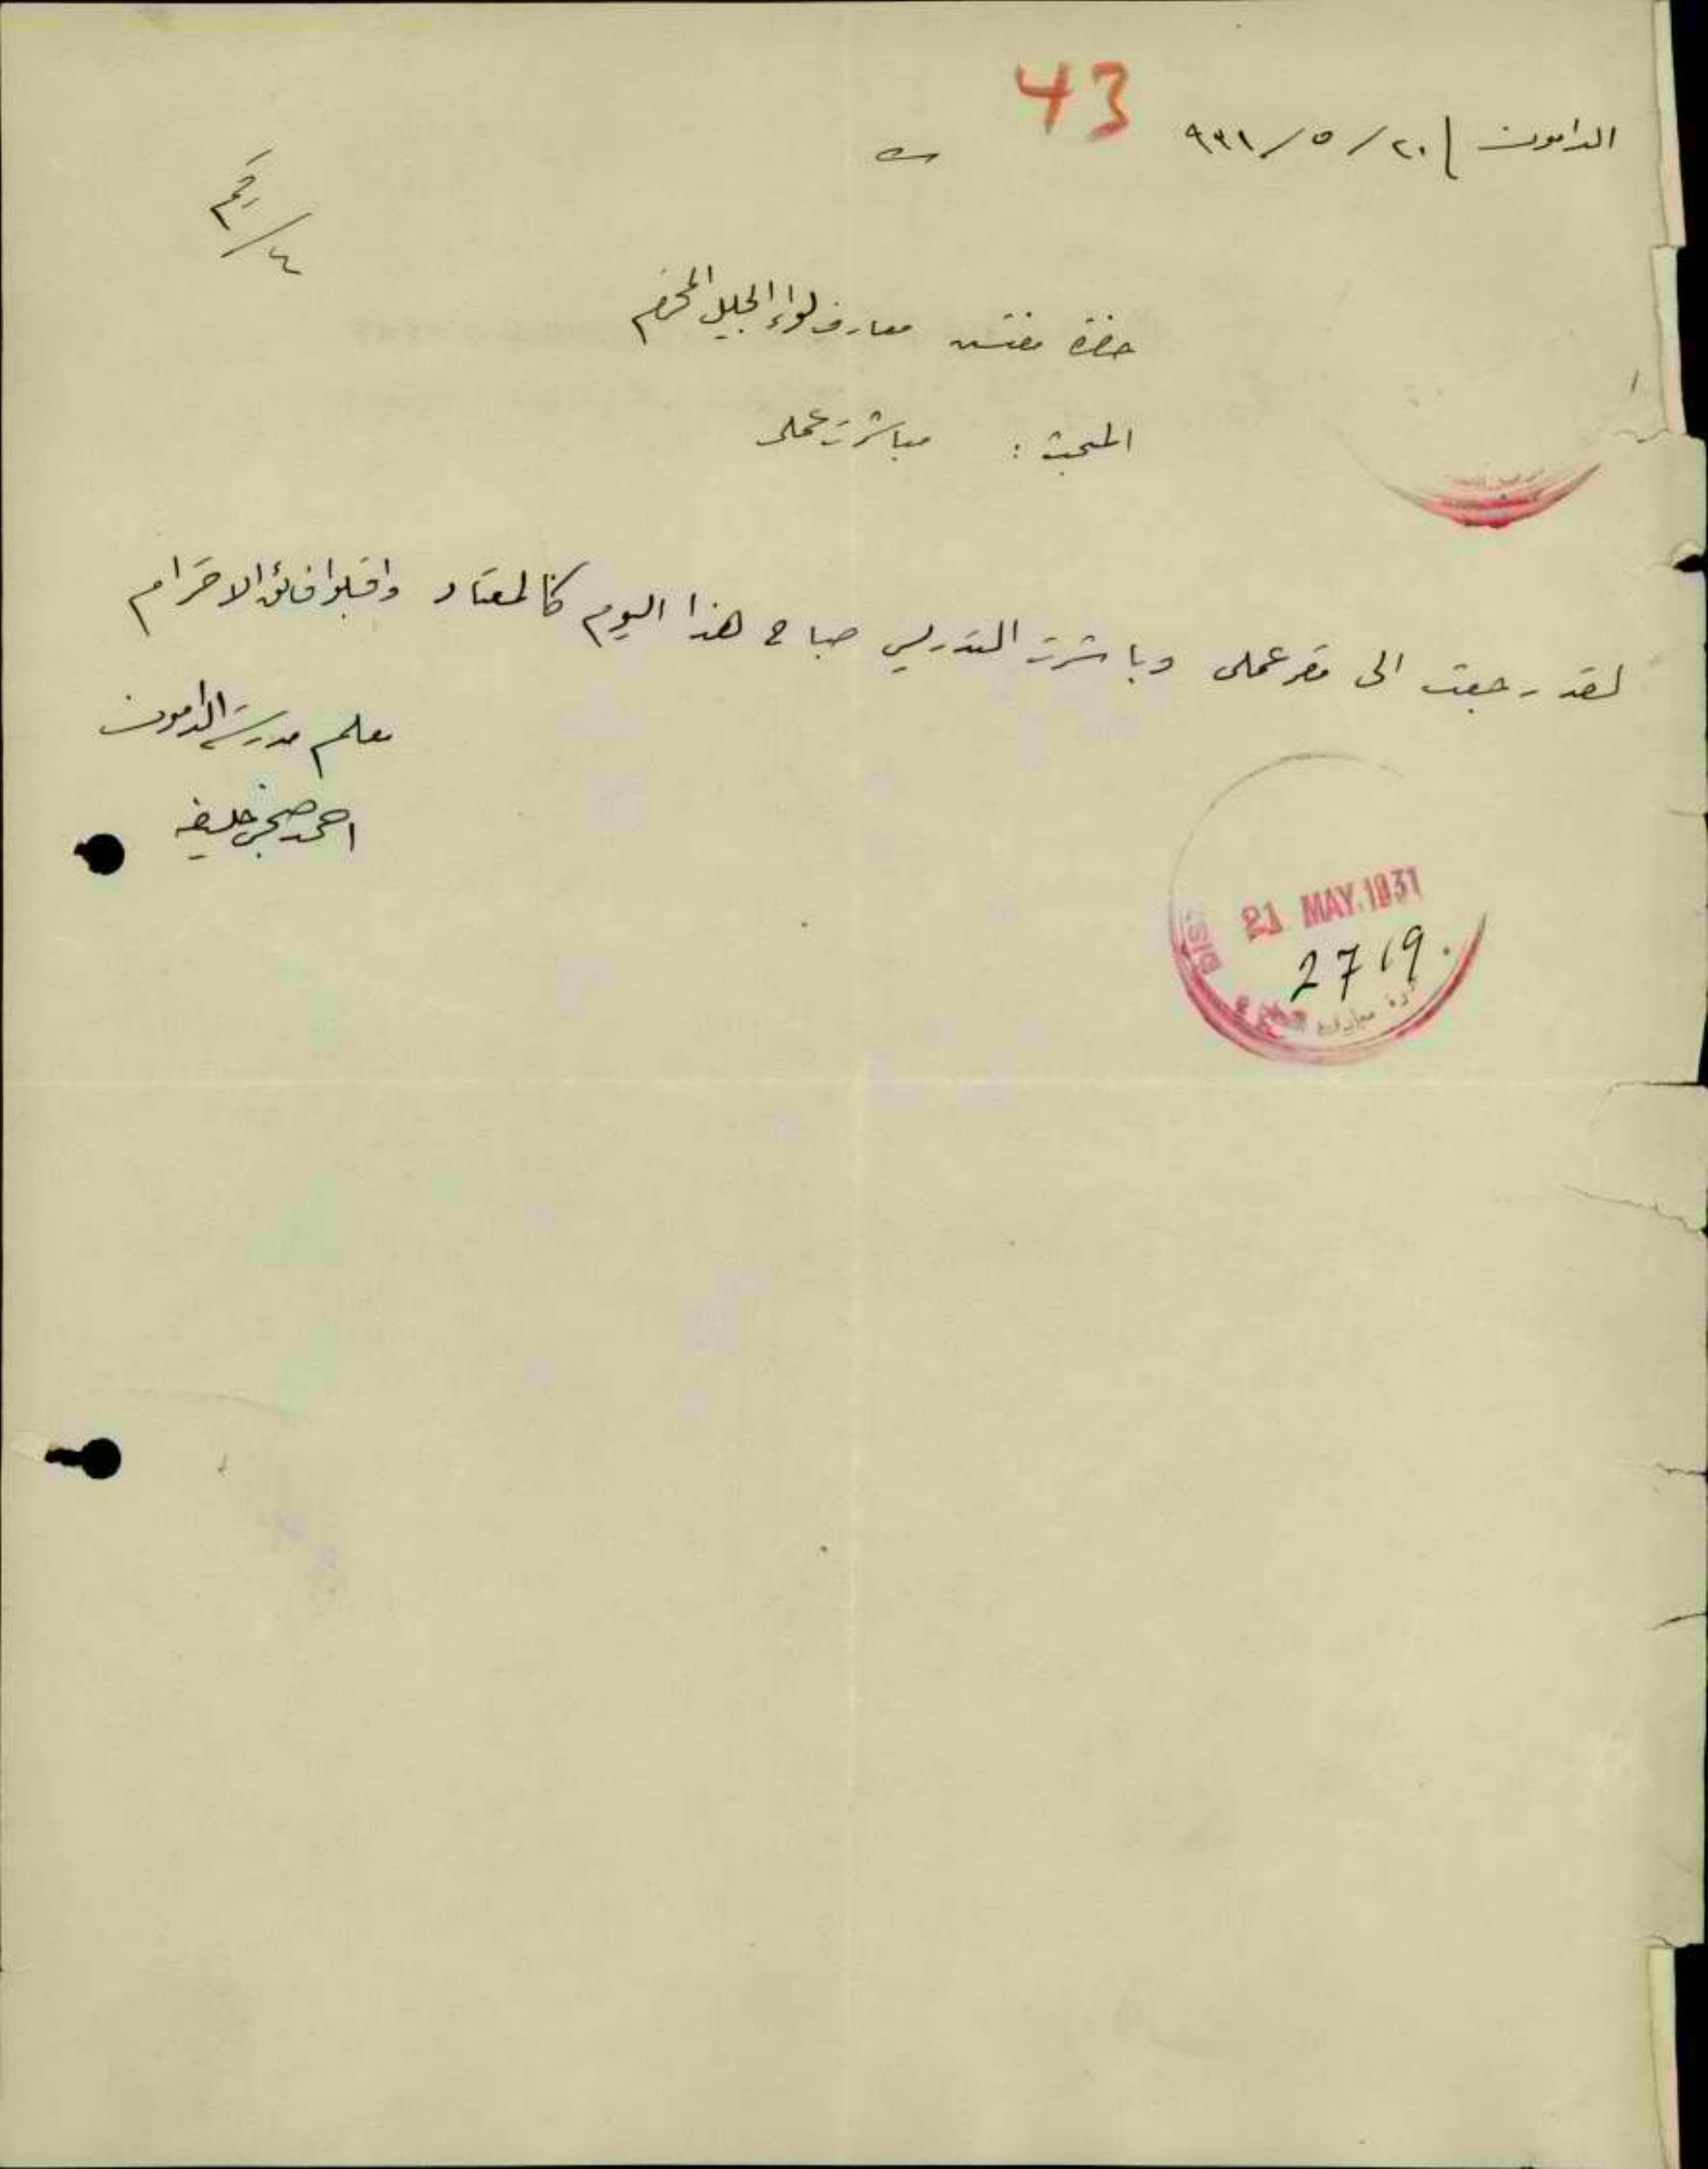 43
الدامون ٢٠/٥/٩٣١
حضرة مفتش معارف لواء الجليل المحترم
المبحث : مباشرت عملي
لقد رجعت الى مقر عملي وباشرت التدريس صباح هذا اليوم كالمعتاد واقبلوا فائق الاحترام
معلم مدرسة الدامون
احمد صبحي خليفه
21 MAY.1931
2719.